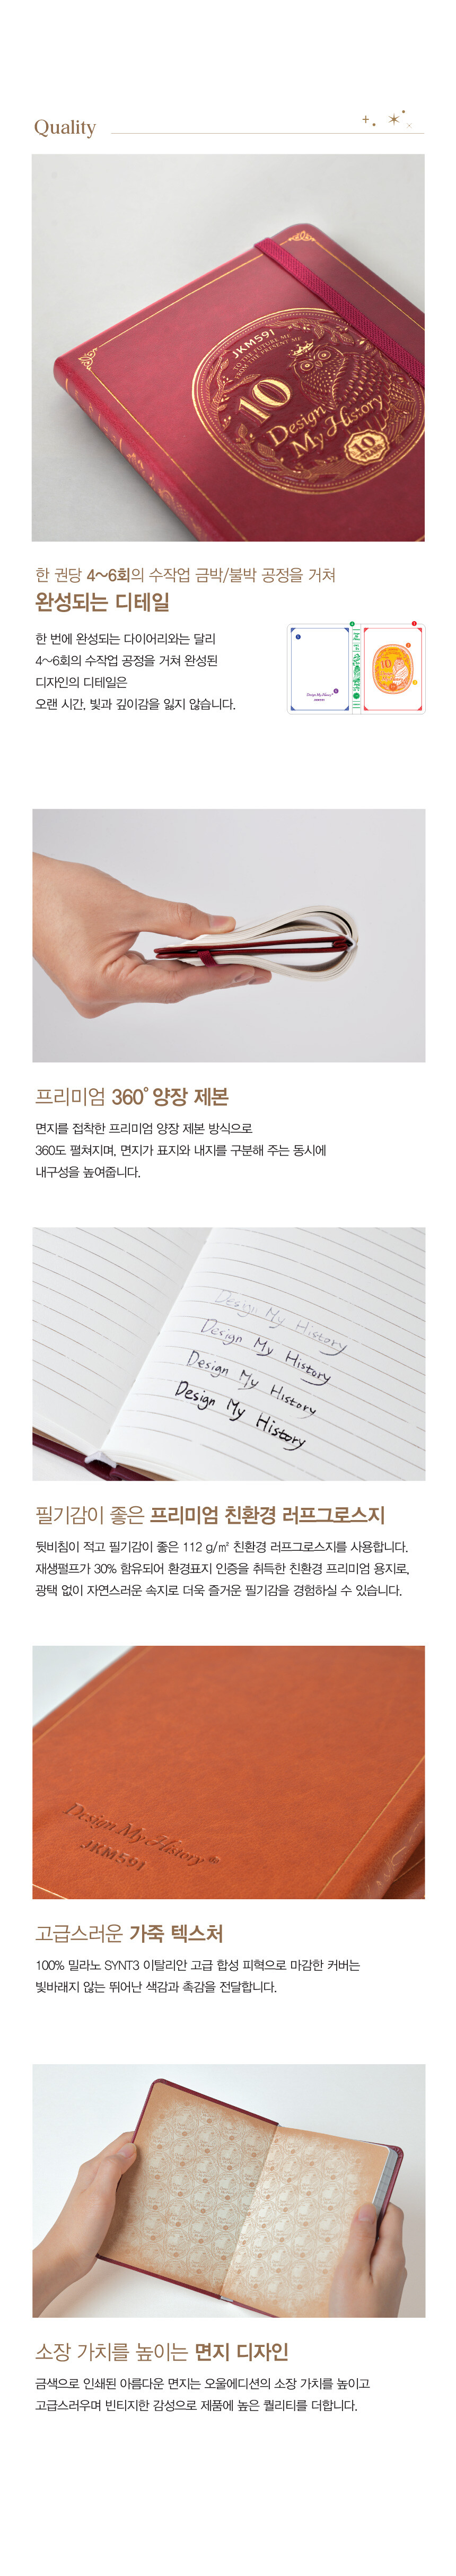 Quality
JKM591
TO THE FUTURE ME
FROM THE PRESENT ME
10
Design
My History
10
YEARS
한 권당 4~6회의 수작업 금박/불박 공정을 거쳐
완성되는 디테일
한 번에 완성되는 다이어리와는 달리
4~6회의 수작업 공정을 거쳐 완성된
디자인의 디테일은
오랜 시간, 빛과 깊이감을 잃지 않습니다.
Design My History
10
프리미엄 360° 양장 제본
면지를 접착한 프리미엄 양장 제본 방식으로
360도 펼쳐지며, 면지가 표지와 내지를 구분해 주는 동시에
내구성을 높여줍니다.
Design My History
Design My History
Design My History
Design My History
필기감이 좋은 프리미엄 친환경 러프그로스지
뒷비침이 적고 필기감이 좋은 112 g/㎡ 친환경 러프그로스지를 사용합니다.
재생펄프가 30% 함유되어 환경표지 인증을 취득한 친환경 프리미엄 용지로,
광택 없이 자연스러운 속지로 더욱 즐거운 필기감을 경험하실 수 있습니다.
Design My History®
JKM591
고급스러운 가죽 텍스처
100% 밀라노 SYNT3 이탈리안 고급 합성 피혁으로 마감한 커버는
빛바래지 않는 뛰어난 색감과 촉감을 전달합니다.
소장 가치를 높이는 면지 디자인
금색으로 인쇄된 아름다운 면지는 오울에디션의 소장 가치를 높이고
고급스러우며 빈티지한 감성으로 제품에 높은 퀄리티를 더합니다.